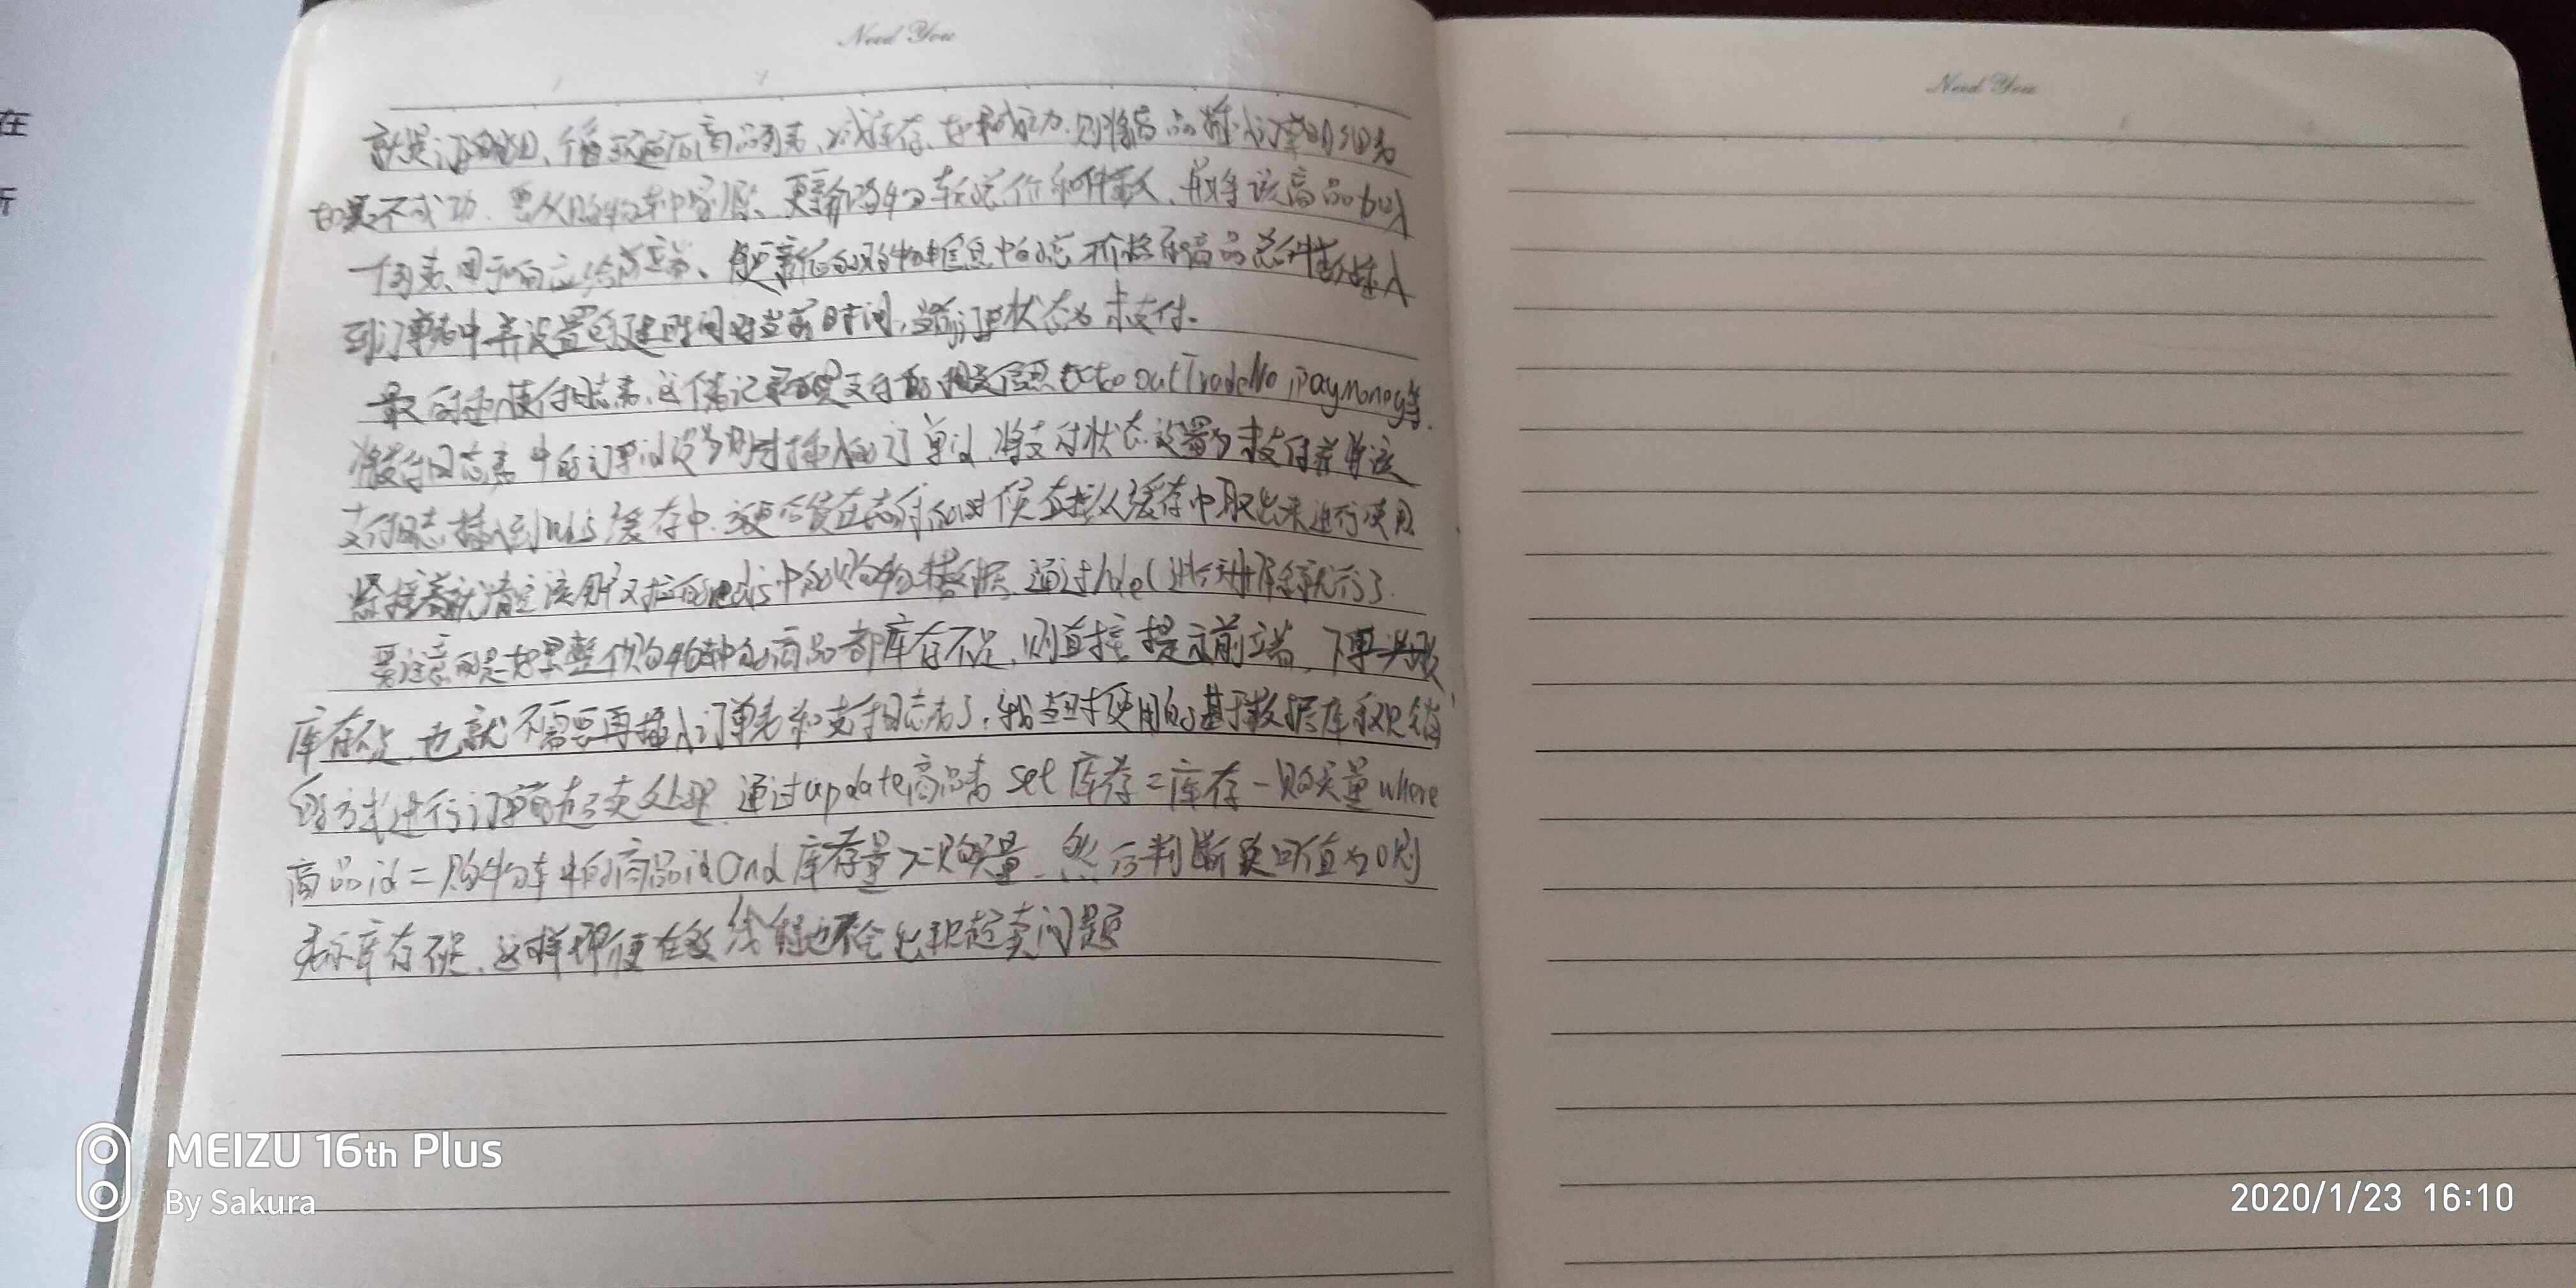 在
听
Need You
Need You
就是订单明细、循环遍历商品列表、减库存、如果成功.则将商品插入订单明细表
如果不成功.要从购物车中剔除、更新购物车总价和件数、并将该商品加入
一个列表、用于响应给前端、将更新后的购物车信息中的总价格和商品总件数插入
到订单表中并设置创建时间为当前时间,当前订单状态为未支付。
最后插入支付日志表.这个表记录的是支付的相关信息 outTradeNo,PayMoney等.
将支付日志表中的订单id设为刚才插入的订单id.将支付状态设置为未支付并将该
支付日志插入到redis缓存中.方便后续在支付的时候直接从缓存中取出来进行使用
紧接着就清空该用户对应的redis中的购物车数据.通过hdel进行删除就行了.
要注意的是如果整个购物车中的商品都库存不足.则直接提示前端,下单失败
库存不足.也就不需要再插入订单表和支付日志表了.我当时使用的基于数据库乐观锁
的方式进行订单防超卖处理.通过update商品表 set 库存=库存-购买量 where
商品id=购物车中的商品id and 库存量>=购买量.然后判断返回值为0则
表示库存不足.这样即便在多线程也不会出现超卖问题
MEIZU 16th Plus
By Sakura
2020/1/23 16:10